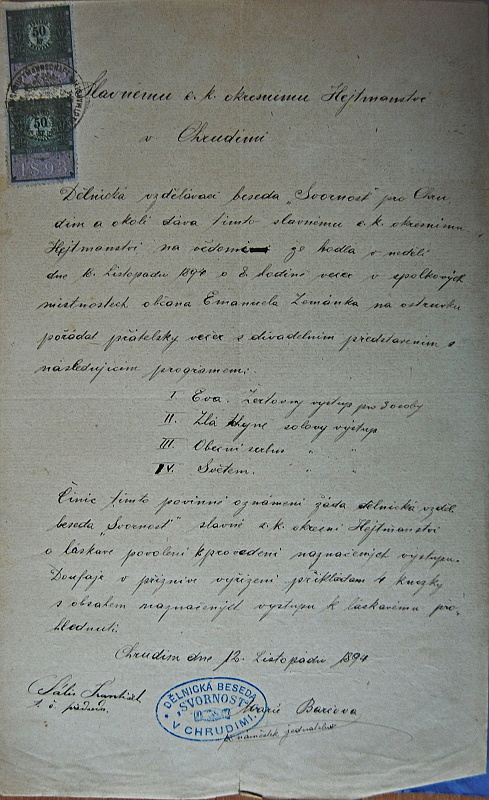 50
50
1893
Slavnému c. k. okresnímu Hejtmanství
v Chrudimi
Dělnická vzdělávací beseda „Svornost" pro Chru
dim a okolí dává tímto slavnému c. k. okresnímu
Hejtmanství na vědomí že hodlá v neděli
dne Listopadu 1894 o 8. hodině večer v spolkových
místnostech občana Emanuela Zemánka na ostrůvku
pořádat přátelský večer s divadelním představením s
následujícím programem:
I. Eva. Žertovný výstup pro 3 osoby
II. Zlá tchyně solový výstup
III. Obecní " "
IV. Světem. " "
Činíc tímto povinné oznámení žádá dělnická vzděl.
beseda „Svornost" slavné c. k. okresní Hejtmanství
o láskavé povolení k provedení naznačených výstupů.
Doufajíc v příznivé vyřízení přikládám 4 knížky
s obsahem naznačených výstupů k láskavému pro-
hlédnutí.
Chrudim dne 12. Listopadu 1894
František
t. č. předseda.
DĚLNICKÁ BESEDA
„SVORNOST"
V CHRUDIMI.
Marie Barčova
náměstek jednatele